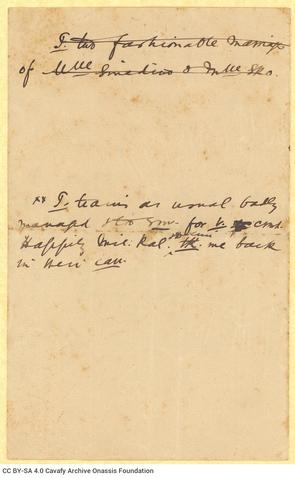 T. two fashionable marriag
of Mlle Sinadino & Mlle Sko.
xx T. trains as usual badly
managed for
Happily Mil. Ral. tk. me back
in their car.
CC BY-SA 4.0 Cavafy Archive Onassis Foundation